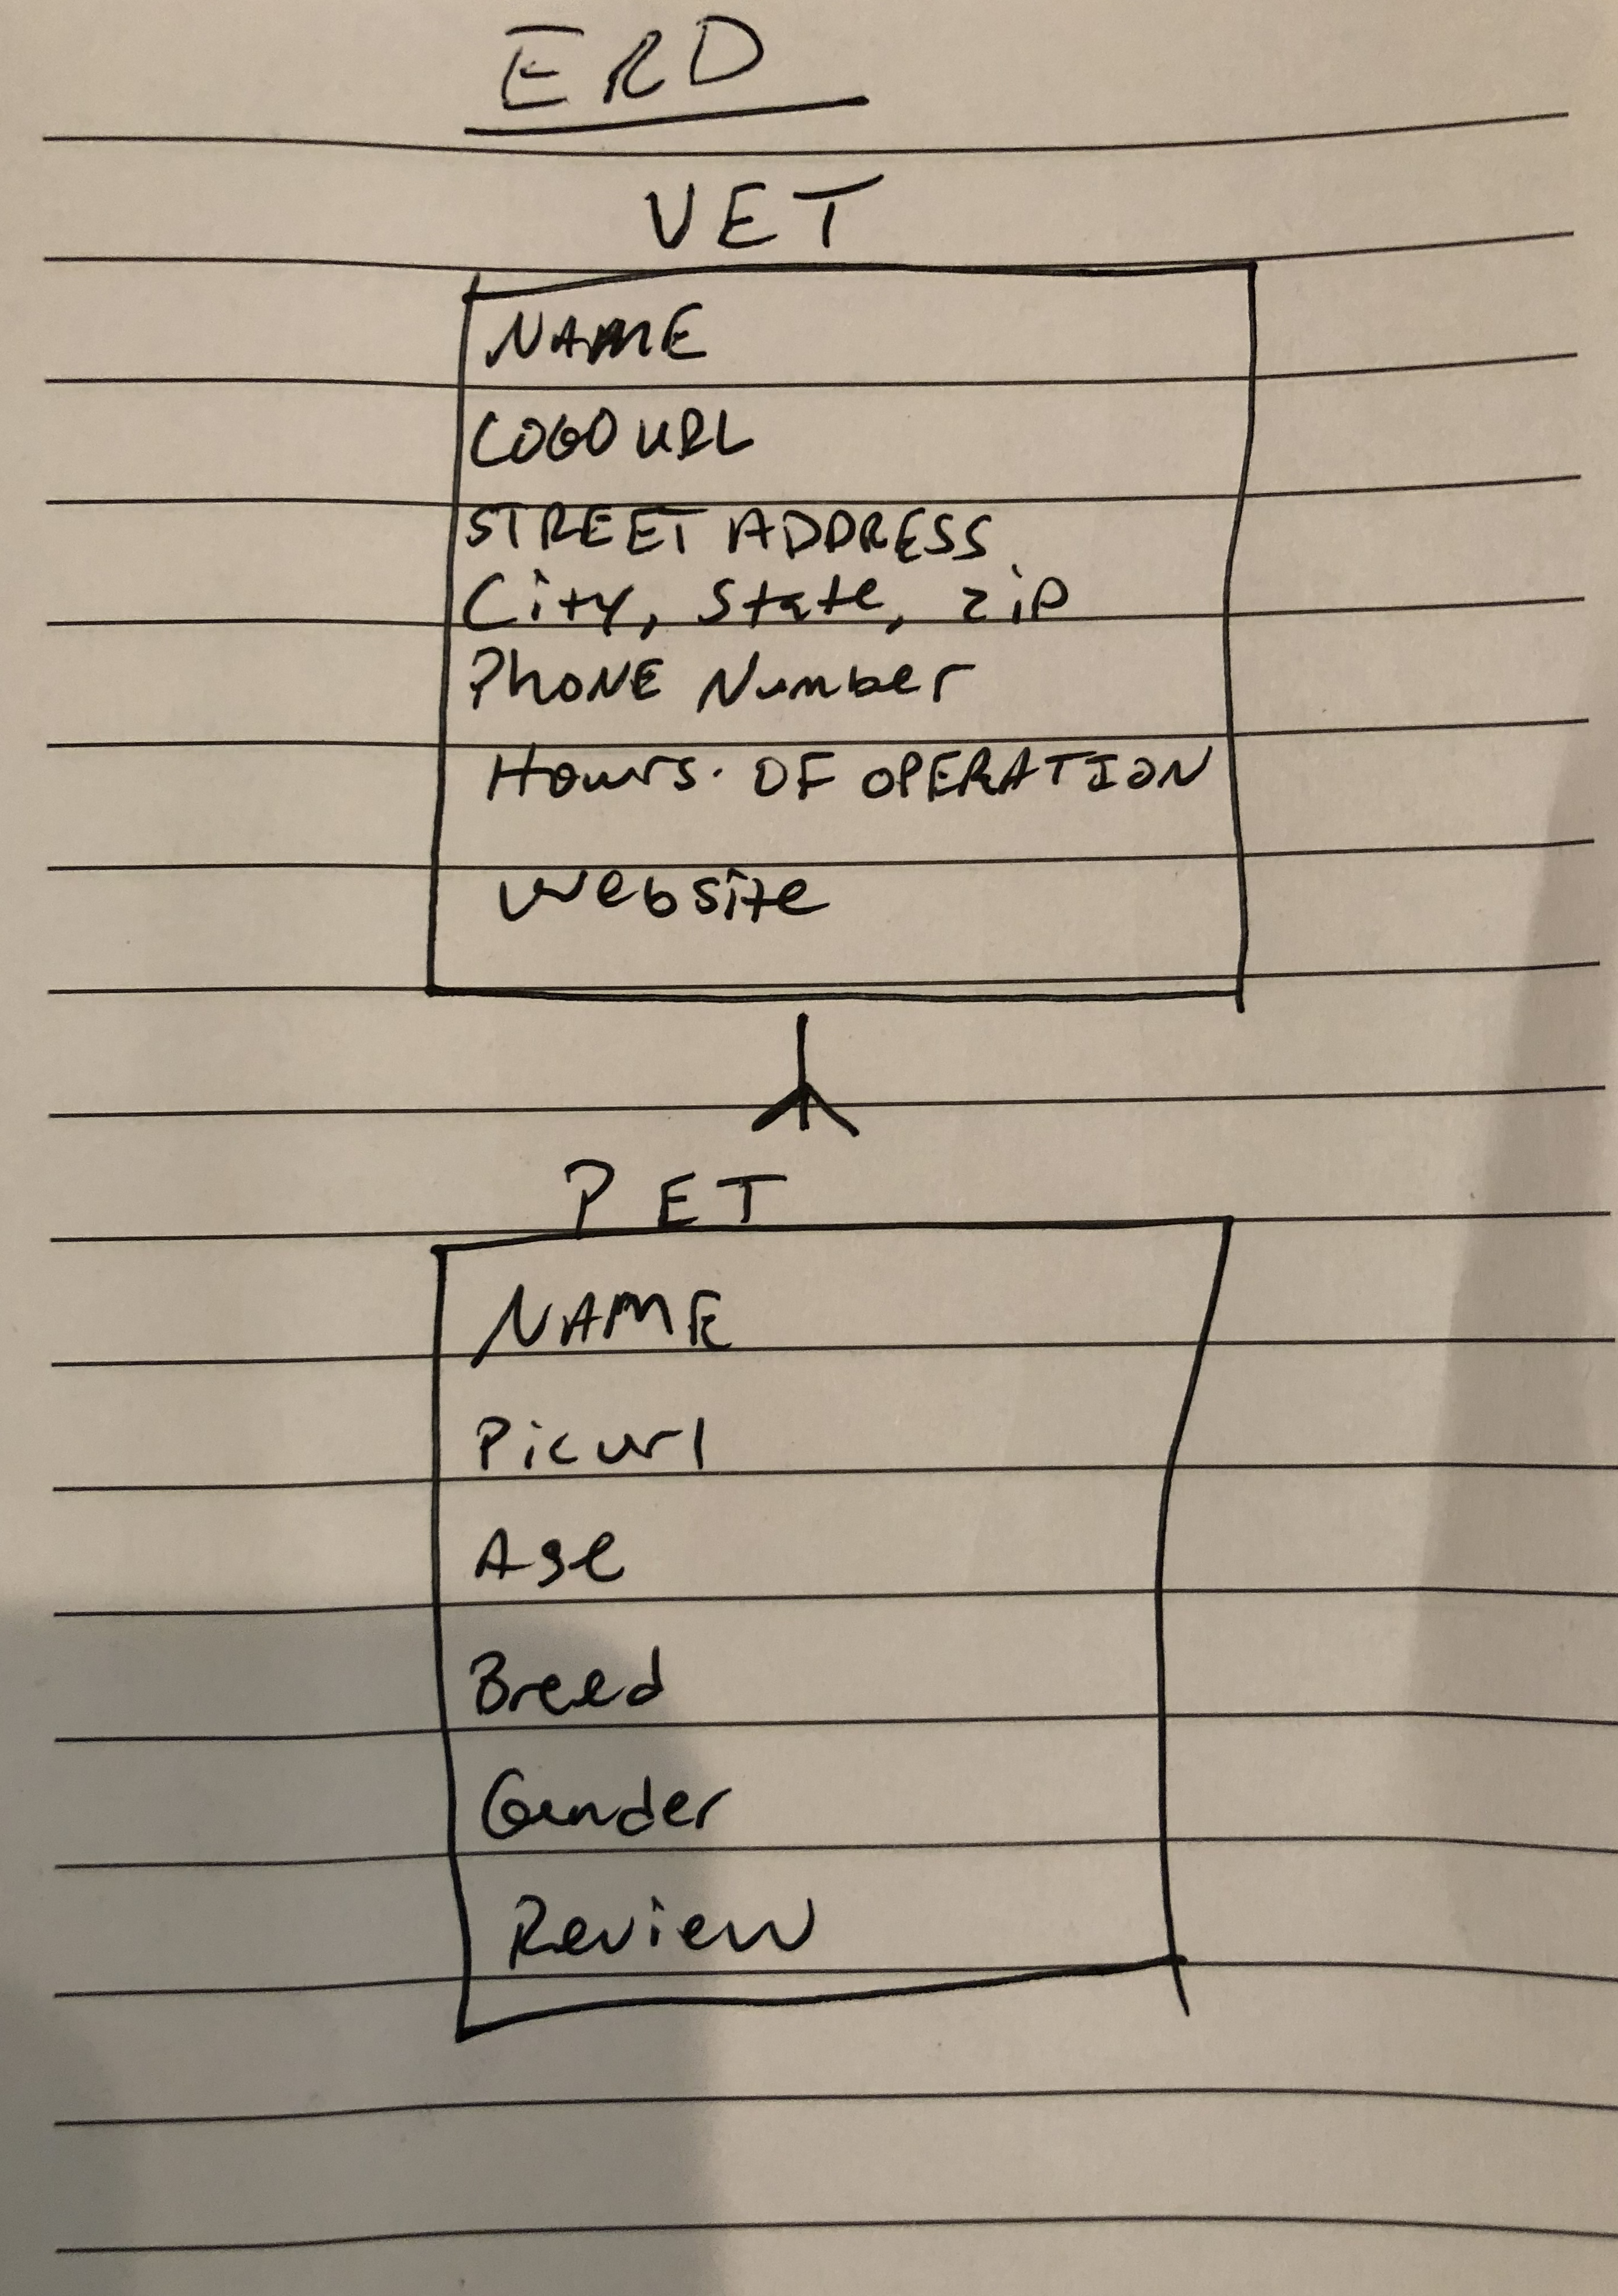 ERD
VET
NAME
LOGO URL
STREET ADDRESS
City, State, zip
PhONE Number
Hours. OF OPERATION
Website
PET
NAME
Pic url
Age
Breed
Gender
Review